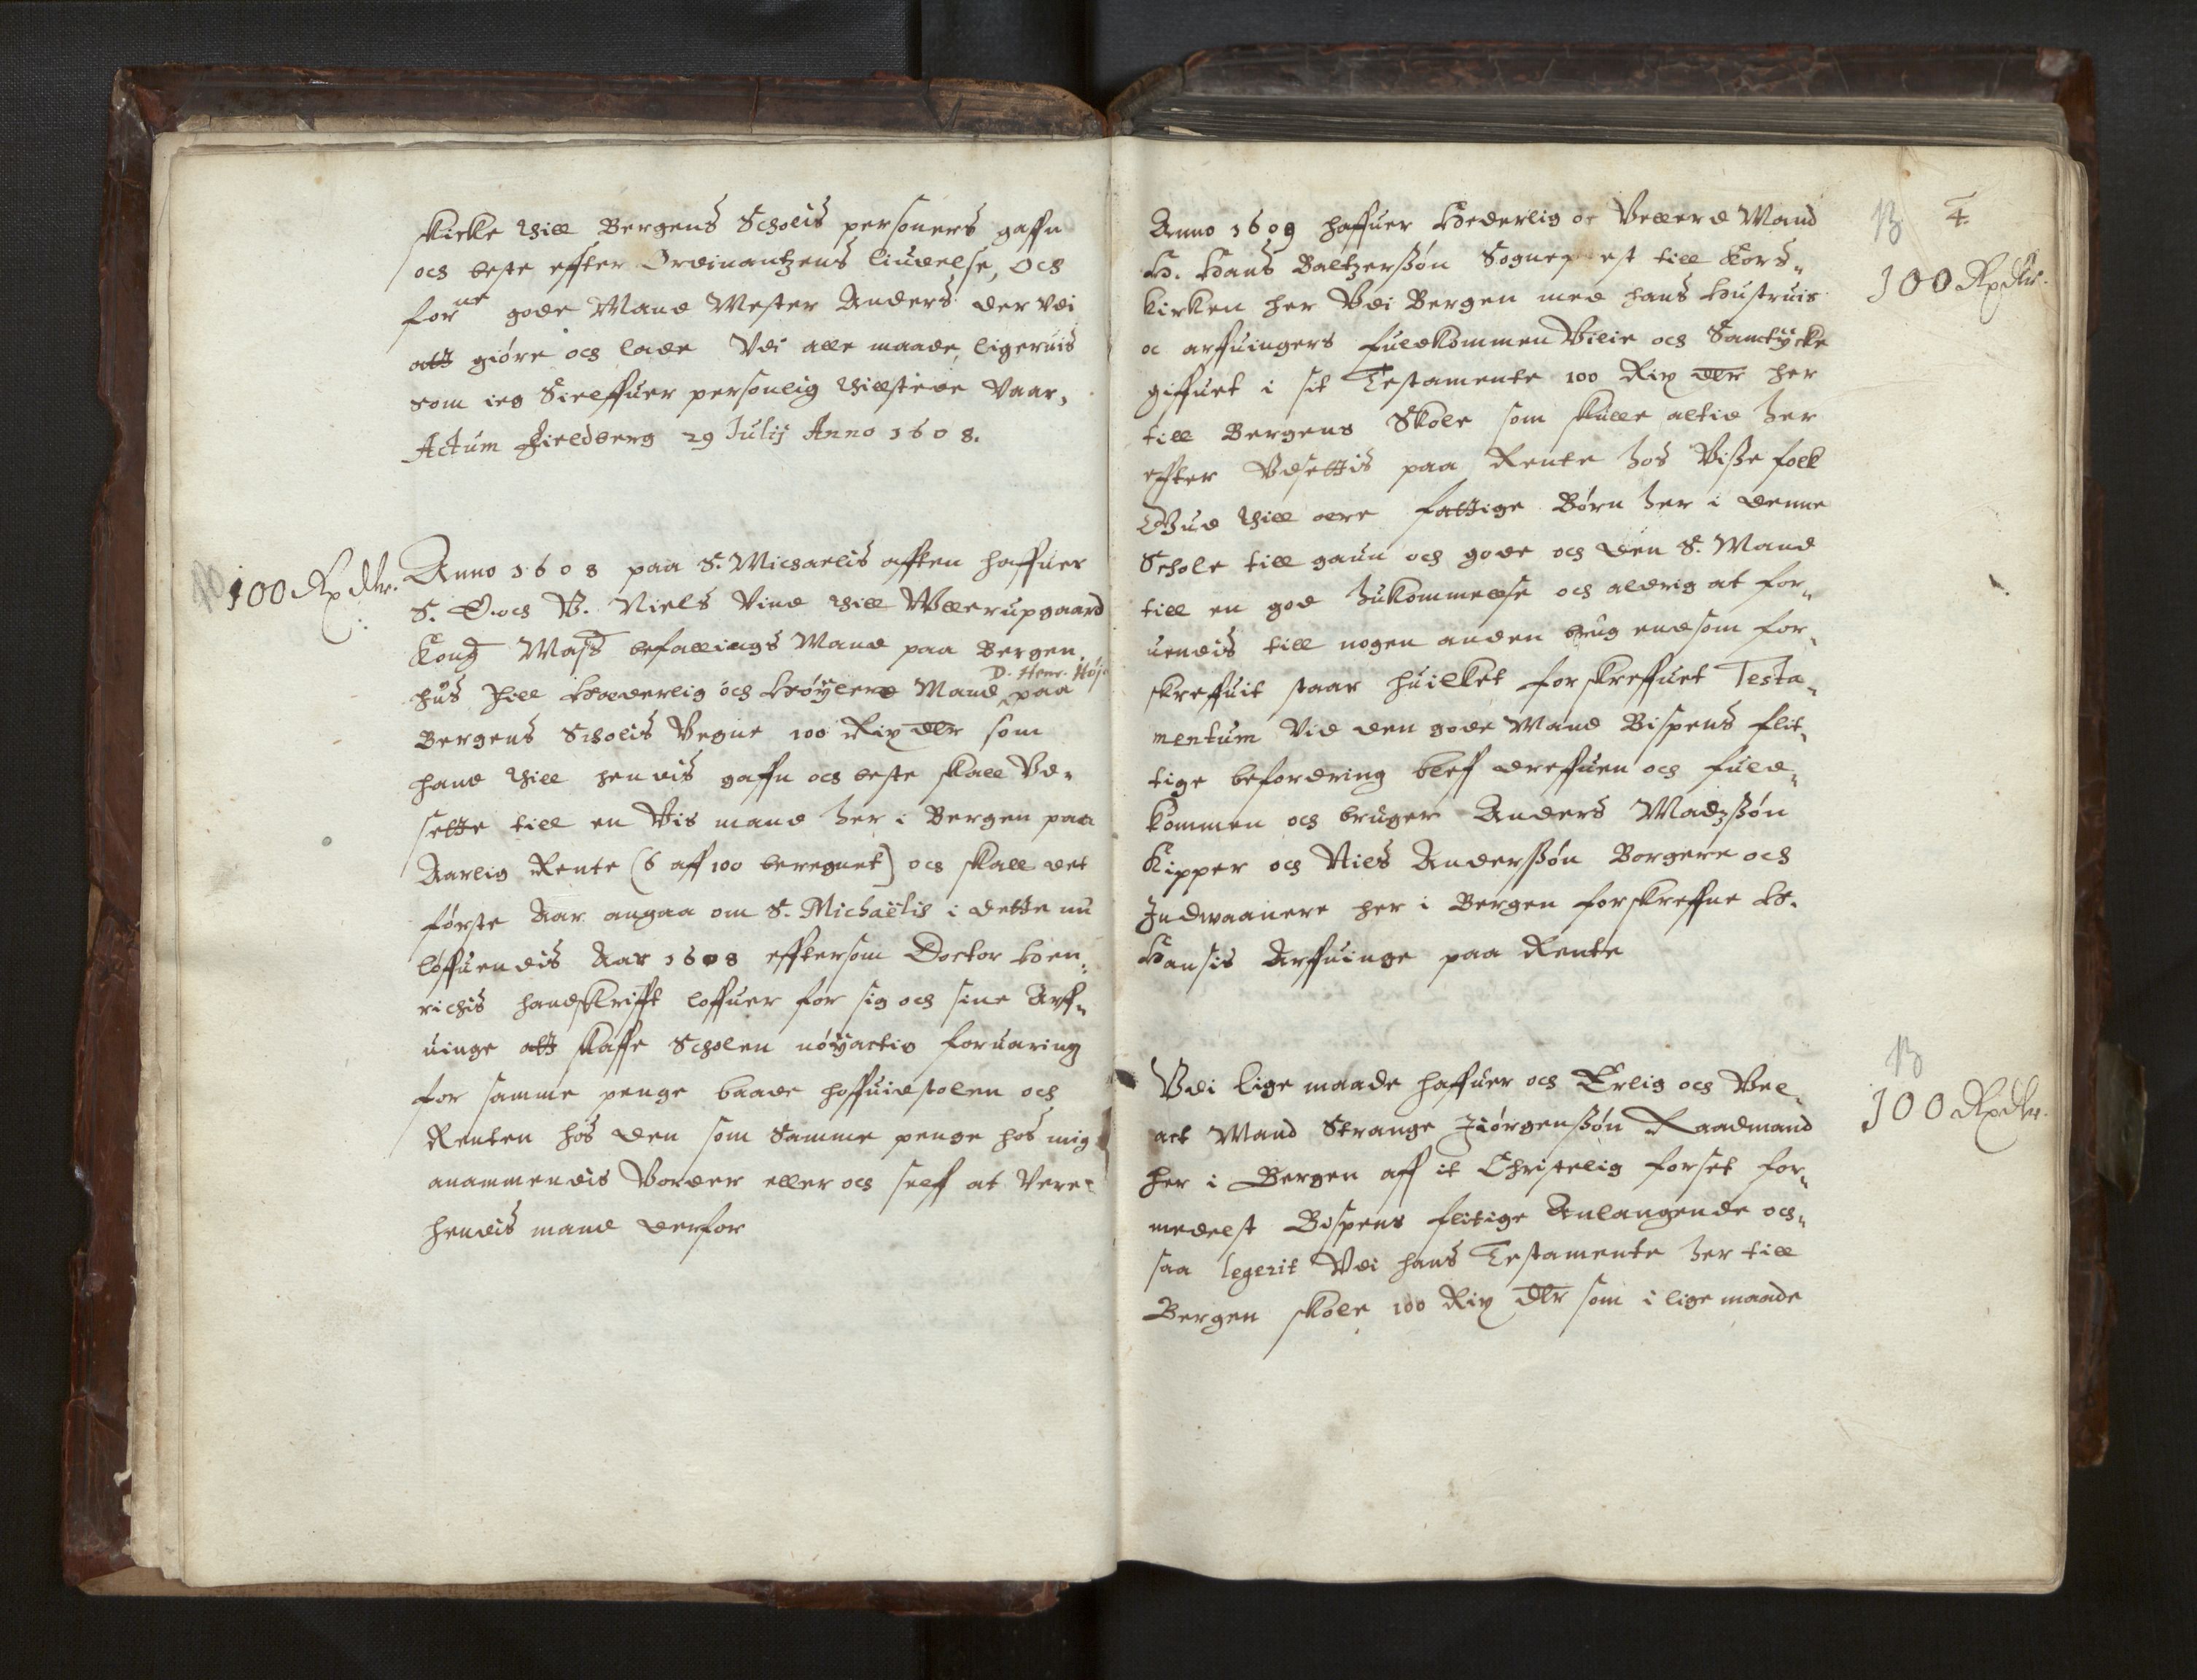 skicke thill Bergens Scholis personers gaffn
och beste effter Ordinantzens liudelse, Och
forne gode Mand Mester Anders der vdi
att giøre och lade Vdi alle maade, ligeruis
som ieg Sielffuer personlig thillstede Vaar,
Actum Fieldberg 29 Julij Anno 1608.
100 Rxdlr.
Anno 1608 paa S. Michaelis afften haffuer
S. E. och V. Niels Vind thill Ullerupgaard
Kong Majs befallings Mand paa Bergen,
hus Fill Hæderlig och Høylerd Mand D. Henr. Høje paa
Bergens Scholis Vegne 100 Rix dlr som
hand thill hendis gaffn och beste skall Vd-
sette till en Vis mand her i Bergen paa
Aarlig Rente (6 aff 100 beregnet) och skall det
første Aar angaa om S. Michaëlis i dette nu
løffuendis Aar 1608 efftersom Doctor Hen-
richs handskrifft loffuer for sig och sine Arff-
uinge att skaffe Scholen nøyactig foruaring
for samme penge baade hoffuidstolen och
Renten hos den som Samme penge hos mig
anammendis Vorder eller och self at Vere
hendis mand derfor
4.
100 Rxdlr.
Anno 1609 haffuer Hederlig oc Vellerd Mand
H. Hans Baltzerssøn Sogneprest till Kors-
kirken her Vdi Bergen med hans Hustruis
oc arffuingers fuldkommen Vilie och Samtycke
giffuet i sit Testamente 100 Rix dlr her
till Bergens Skole som skulle altid her
effter Vdsettis paa Rente hos Visse folk
Gud thill ære fattige Børn her i denne
Schole till gaun och gode och den S. Mand
till en god hukommelse och aldrig at for-
uendis till nogen anden brug end som for-
skreffuit staar huilket forskreffuet Testa-
mentum Vid den gode Mand Bispens flit-
tige befordring bleff dreffuen och fuld-
kommen och bruger Anders Madzssøn
Kipper och Niels Anderssøn Borgere och
Indwaanere her i Bergen forskreffne H.
Hansis Arffuinge paa Rente
100 Rxdlr.
Vdi lige maade haffuer och Erlig och Vel-
act Mand Strange Jiørgenssøn Raadmand
her i Bergen aff it Christelig forset for-
medelst Bispens flitige Anlangende och-
saa legerit Vdi hans Testamente her till
Bergen skole 100 Rix dlr som i lige maade